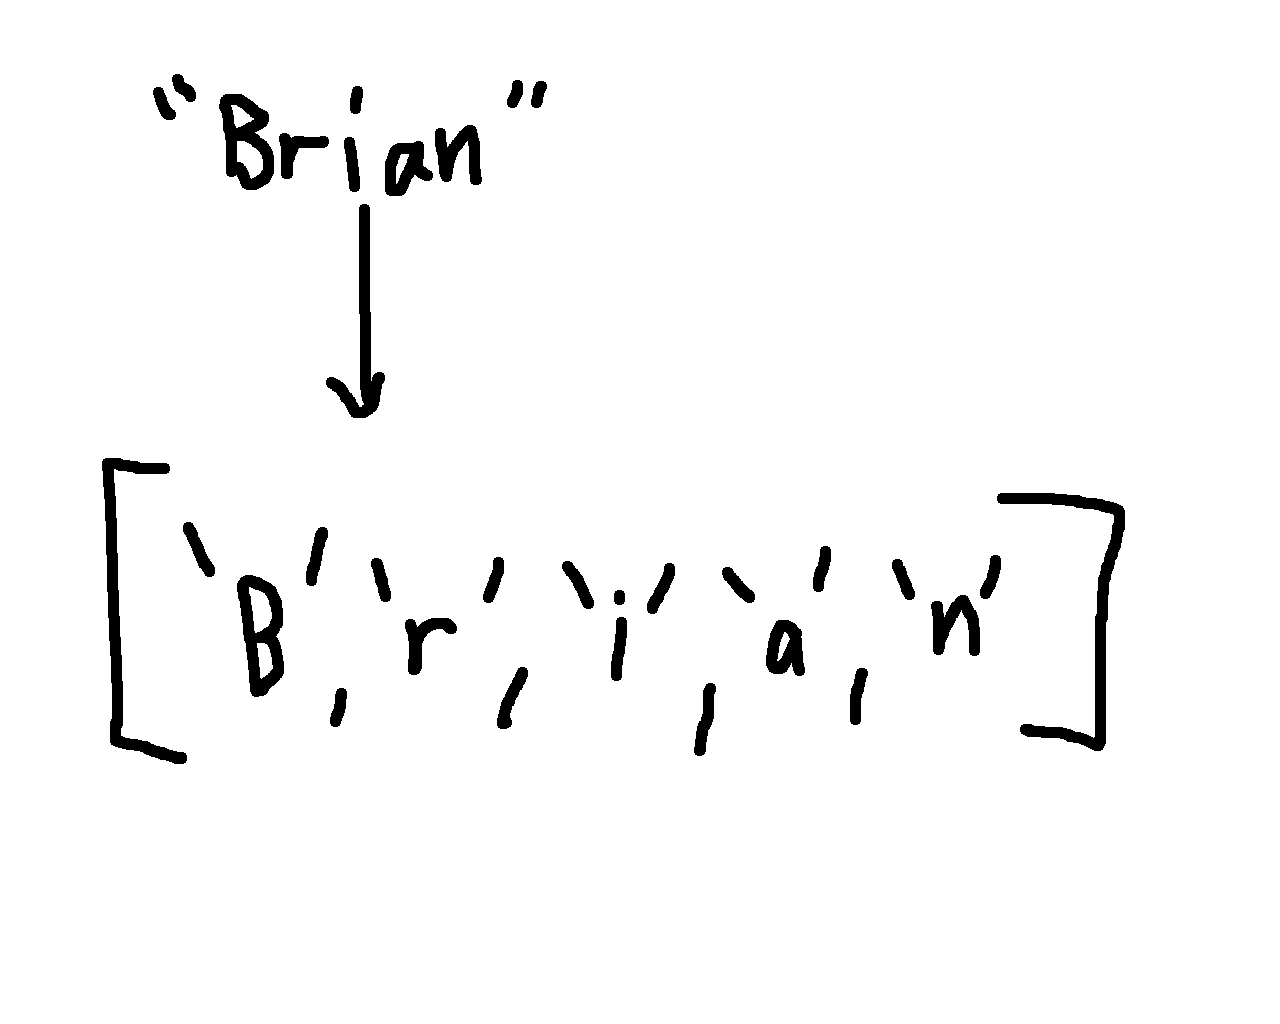 "Brian"
['B', 'r', 'i', 'a', 'n']